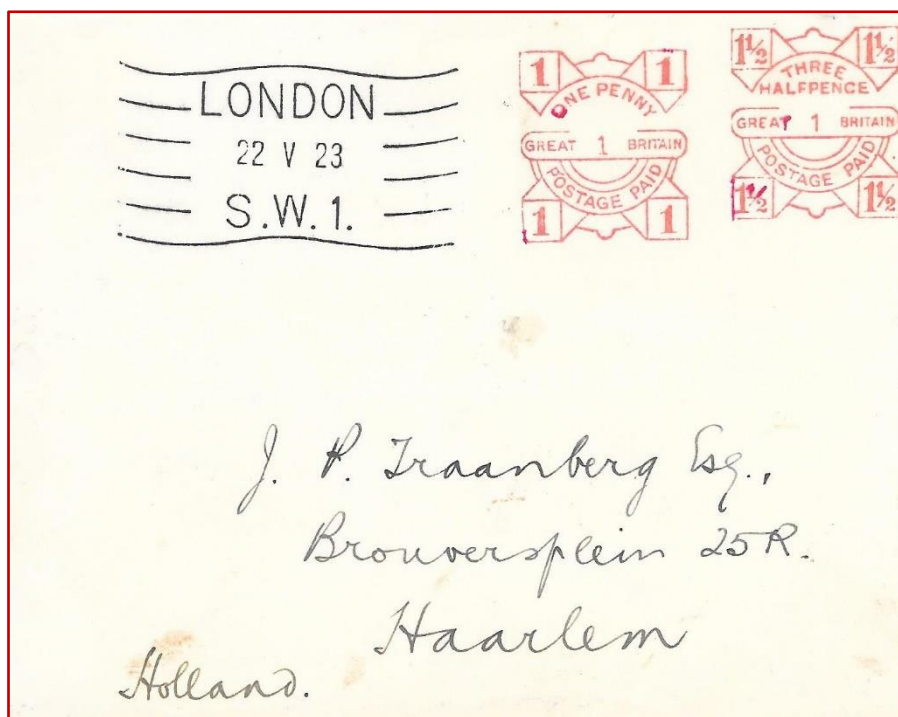 LONDON
22 V 23
S.W.1.
1 1
ONE PENNY
GREAT 1 BRITAIN
POSTAGE PAID
1 1
1½ 1½
THREE
HALFPENCE
GREAT 1 BRITAIN
POSTAGE PAID
1½ 1½
J. P. Traanberg Esq.,
Brouversplein 25R.
Haarlem
Holland.